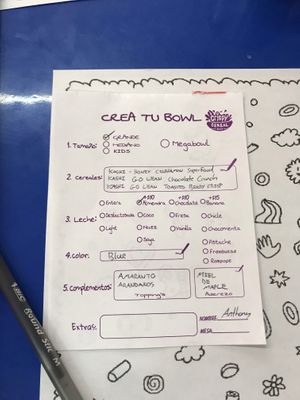 CREA TU BOWL
CRAZY
CEREAL
1. Tamaño:
GRANDE
MEDIANO
KIDS
Megabowl
2. Cereales:
KASHI - HONEY CINNAMON Superfood
KASHI GO LEAN Chocolate Crunch
KASHI GO LEAN TOASTED BERRY CRISP
3. Leche:
Entera
+$10
Almendra
+$10
Chocolate
+$15
Banana
Deslactosada
Coco
Fresa
Chicle
Light
Nuez
Vainilla
Chocomenta
Soya
Pistache
Frambuesa
Rompope
4. Color:
Blue
5. Complementos:
AMARANTO
ARANDANOS
Topping's
MIEL
DE
MAPLE
Aderezo
Extras:
NOMBRE
Anthony
MESA
Round Stic M